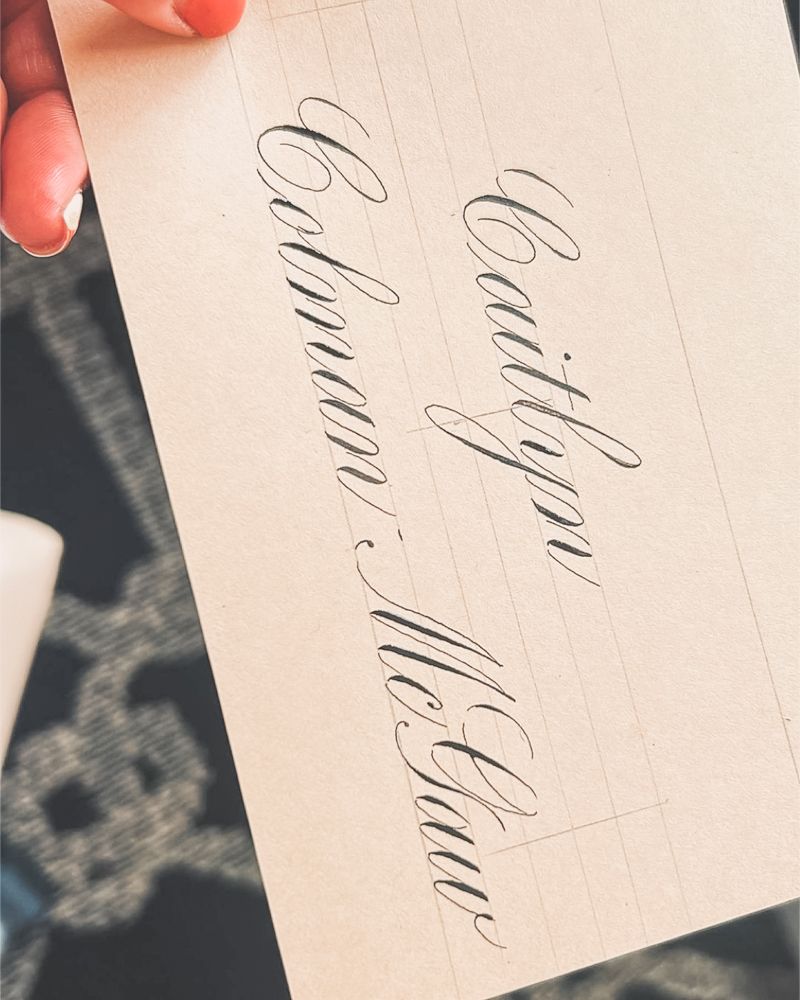 Caitlyn
Colman McGaw